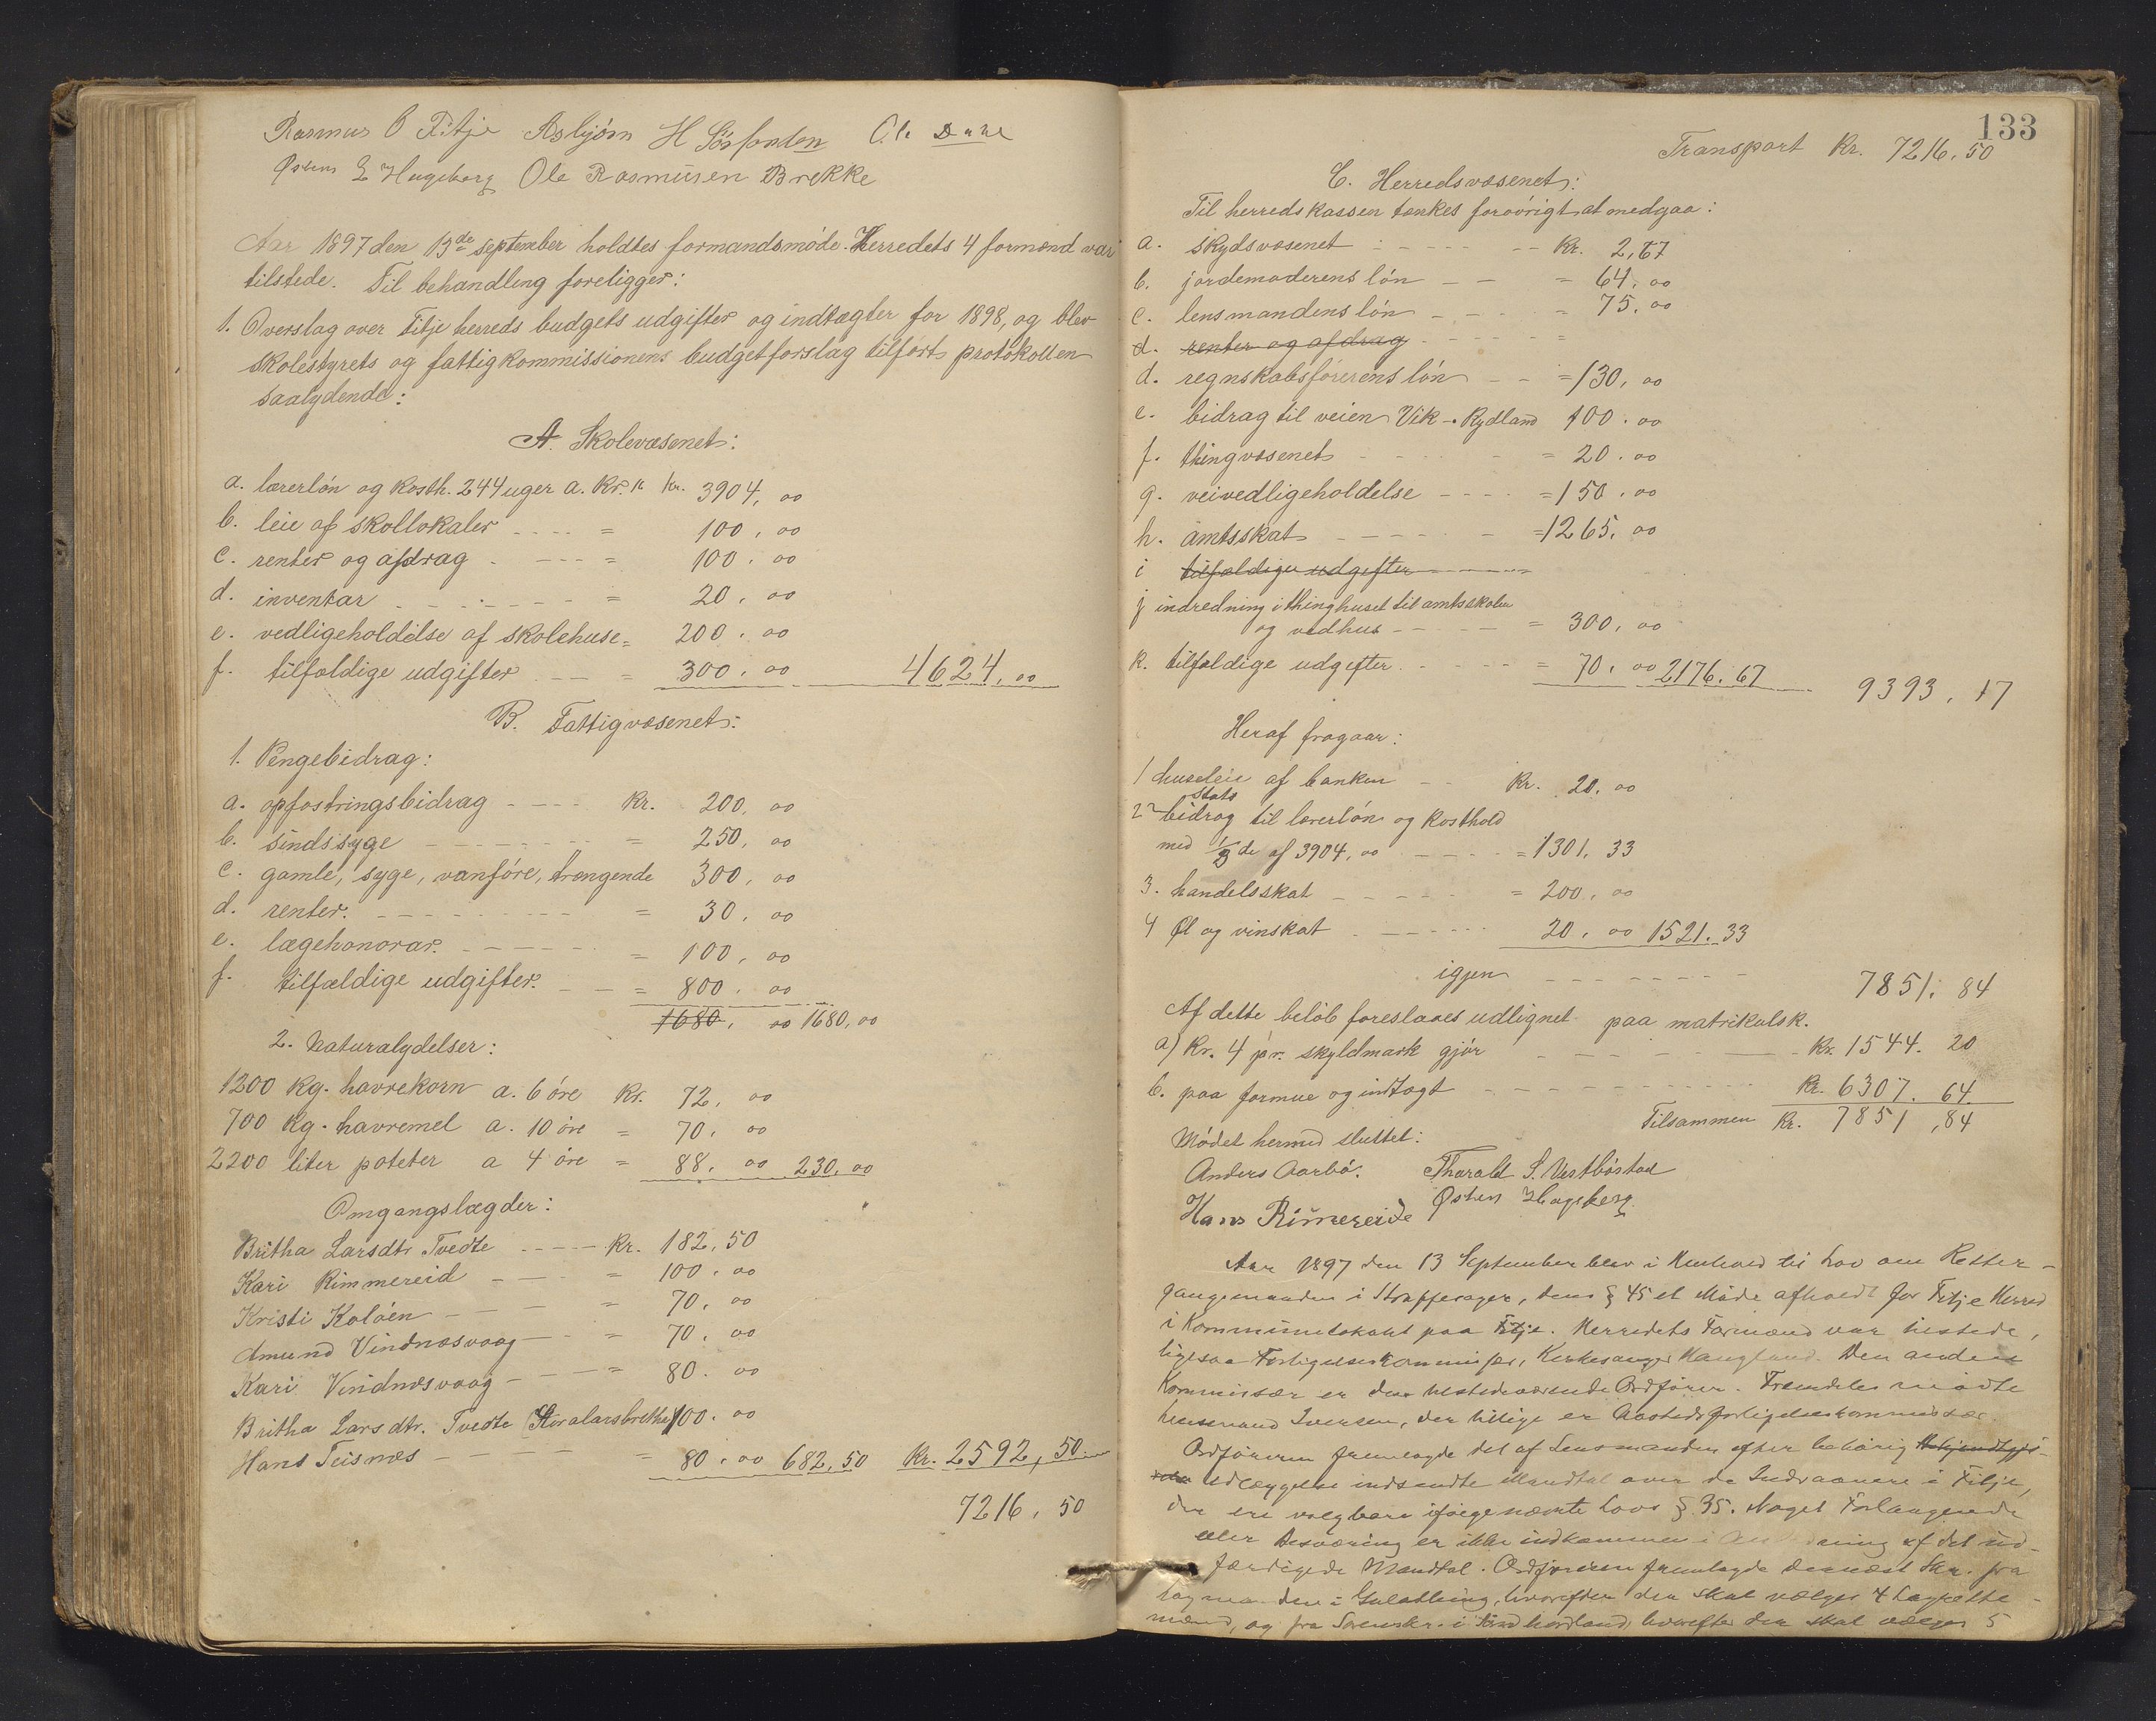 Rasmus O Fitje Asbjörn H Sörfonden Ole Dahl
Østen E Hageberg Ole Rasmusen Brekke
Aar 1897 den 13de september holdtes formandsmöde. Herredets 4 formænd var
tilstede. Til behandling foreligger:
1. Overslag over Fitje herreds budgets udgifter og indtægter for 1898, og blev
skolestyrets og fattigkommissionens budgetforslag tilfört protokollen
saalydende:
A. Skolevæsenet:
a. lærerlön og kosth. 244 uger a. Kr. 16 Kr. 3904, 00
b. leie af skollokaler - - - - = 100, 00
c. renter og afdrag - - - - = 100, 00
d. inventar - - - - - - = 20, 00
e. vedligeholdelse af skolehuse = 200, 00
f. tilfældige udgifter - - - = 300, 00 4624, 00
B. Fattigvæsenet:
1. Pengebidrag:
a. opfostringsbidrag - - - - Kr. 200, 00
b. sindssyge - - - - - - = 250, 00
c. gamle, syge, vanföre, trængende 300, 00
d. renter. - - - - - - - = 30, 00
e. lægehonorar. - - - - - = 100, 00
f. tilfældige udgifter. - - = 800, 00
1680, 00 1680, 00
2. Naturalydelser:
1200 kg. havrekorn a. 6 öre Kr. 72, 00
700 kg. havremel a. 10 öre = 70, 00
2200 liter poteter a 4 öre = 88, 00 230, 00
Omgangslægder:
Britha Larsdtr Tvedte - - - - Kr. 182, 50
Kari Rimmereid - - - = 100, 00
Kristi Kalöen - - - - = 70, 00
Amund Vindnæsvaag - - = 70, 00
Kari Vindnæsvaag - - - = 80. 00
Britha Larsdtr. Tvedte 100. 00
Hans Teisnæs - - - - = 80, 00 682, 50 Kr. 2592, 50
7216, 50
133
Transport Kr. 7216, 50
C. Herredsvæsenet:
Til herredskassen tænkes forövrigt at medgaa:
a. skydsvæsenet - - - - - Kr. 2, 67
b. jordemoderens lön - - = 64, 00
c. lensmandens lön - - - = 75, 00
d. renter og afdrag - - - - =
d. regnskabsförerens lön - - = 130, 00
e. bidrag til veien Vik - Rydland 100. 00
f. thingvæsenet - - - - = 20. 00
g. veivedligeholdelse - - - - = 150, 00
h. amtsskat - - - - - = 1265, 00
i tilfældige udgifter
j indredning i thinghuset til amtsskolen
og vedhus - - - - = 300, 00
k. tilfældige udgifter. - - - - = 70, 00 2176, 67
9393, 17
Heraf fragaar:
1 husleie af banken - - Kr. 20. 00
stats
2 bidrag til lærerlön og kosthold
med 1/3 de af 3904, 00 - - - = 1301, 33
3. handelsskat - - - - - = 200, 00
4 Öl og vinskat - - - - - 20, 00 1521. 33
igjen - - - - - - - 7851, 84
Af dette belöb foreslaaes udlignet paa matrikulsk.
a) Kr. 4 pr. skyldmark gjör - - - - - Kr. 1544. 20
b. paa formue og indtægt - - - - - - - Kr. 6307. 64
Tilsammen Kr. 7851, 84
Mödet hermed sluttet:
Anders Aarbö. Thorald S. Vestböstad
Hans Rimereide Østen Hageberg
Aar 1897 den 13 September blev i Henhold til Lov om Retter-
gangsmaaden i Straffesager, dens § 45 et Möde afholdt for Fitje Herred
i Kommunelokalet paa Fitje. Herredets Formænd var tilstede,
ligesaa Forligelseskommissær, Kirkesanger Haugland. Den anden
Kommissær er den tilstedeværende Ordförer. Fremdeles mödte
Lensmand Iversen, der tillige er Aastedsforligelseskommissær.
Ordföreren fremlagde det af Lensmanden efter behörig
Udlæggelse indsendte Mandtal over de Indvaanere i Fitje,
der ere valgbare ifölge nævnte Lovs § 35. Noget Forlangende
eller Besværing er ikke indkommen i Anledning af det ud-
færdigede Mandtal. Ordföreren fremlagde dernæst Skr. fra
Lagmanden i Gulathing, hvorefter der skal vælges 4 Lagrette-
mænd, og fra Sorenskr. i Söndhordland, hvorefter der skal vælges 5